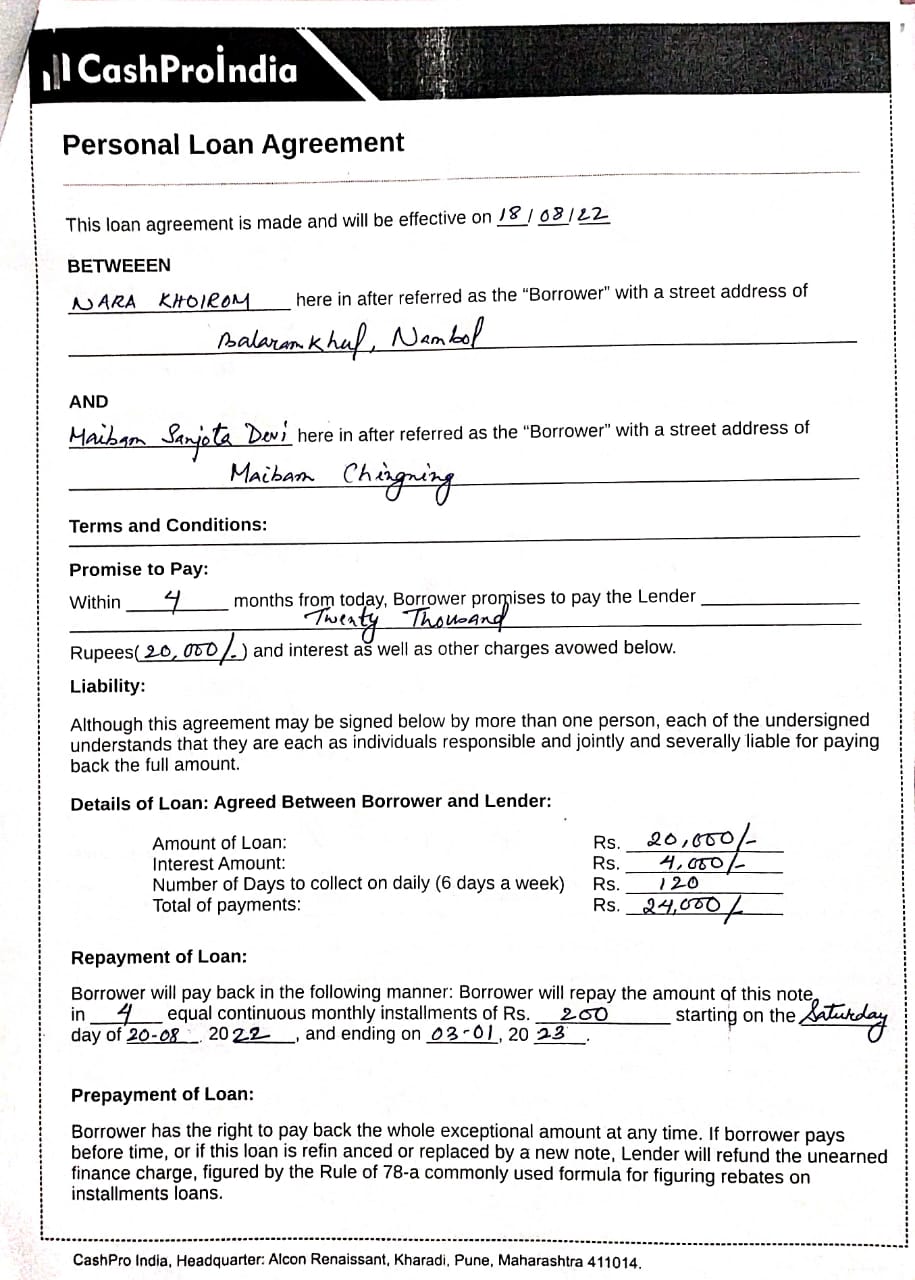 CashProIndia
Personal Loan Agreement
This loan agreement is made and will be effective on 18 / 08 / 22
BETWEEEN
NARA KHOIROM here in after referred as the “Borrower” with a street address of
Balaramkhul, Nambol
AND
Maibam Sanjota Devi here in after referred as the “Borrower” with a street address of
Maibam Chingning
Terms and Conditions:
Promise to Pay:
Within 4 months from today, Borrower promises to pay the Lender
Twenty Thousand
Rupees(20,000/-) and interest as well as other charges avowed below.
Liability:
Although this agreement may be signed below by more than one person, each of the undersigned
understands that they are each as individuals responsible and jointly and severally liable for paying
back the full amount.
Details of Loan: Agreed Between Borrower and Lender:
Amount of Loan: Rs. 20,000/-
Interest Amount: Rs. 4,000/-
Number of Days to collect on daily (6 days a week) Rs. 120
Total of payments: Rs. 24,000/-
Repayment of Loan:
Borrower will pay back in the following manner: Borrower will repay the amount of this note
in 4 equal continuous monthly installments of Rs. 200 starting on the Saturday
day of 20-08 . 2022 , and ending on 03-01, 20 23 .
Prepayment of Loan:
Borrower has the right to pay back the whole exceptional amount at any time. If borrower pays
before time, or if this loan is refin anced or replaced by a new note, Lender will refund the unearned
finance charge, figured by the Rule of 78-a commonly used formula for figuring rebates on
installments loans.
CashPro India, Headquarter: Alcon Renaissant, Kharadi, Pune, Maharashtra 411014.